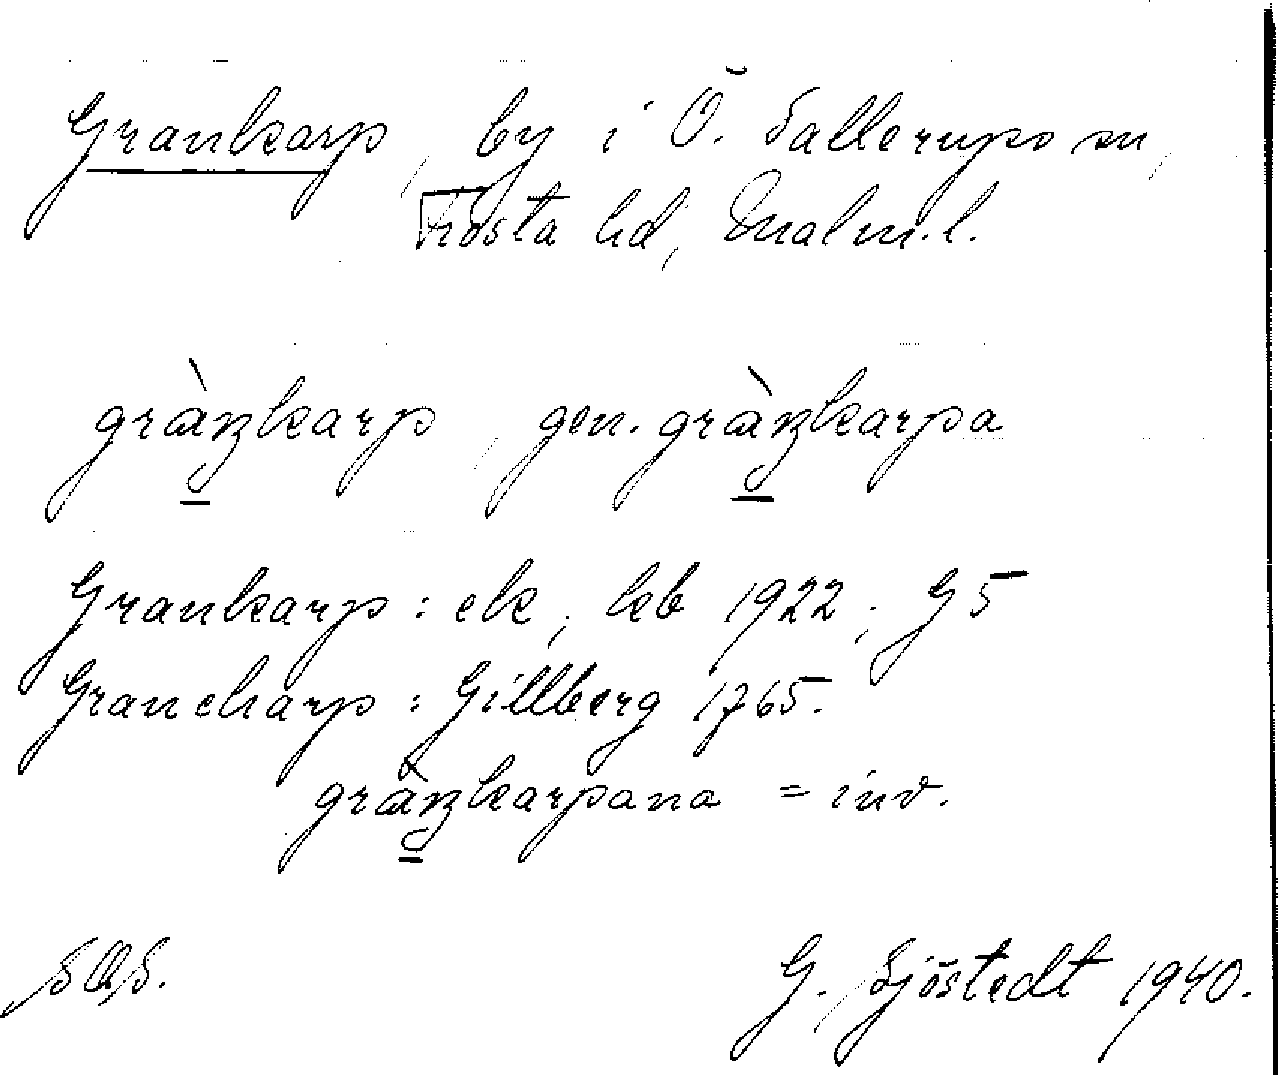 Grankarp, by i Ö. Sallerups sn,
Frosta hd, Malm.l.
gràŋkarp, gen. gràŋkarpa
Grankarp: ek, kb 1922; G5
Grancharp: Gillberg 1765.
gràŋkarpana = inv.
SOS.
G. Sjöstedt 1940.